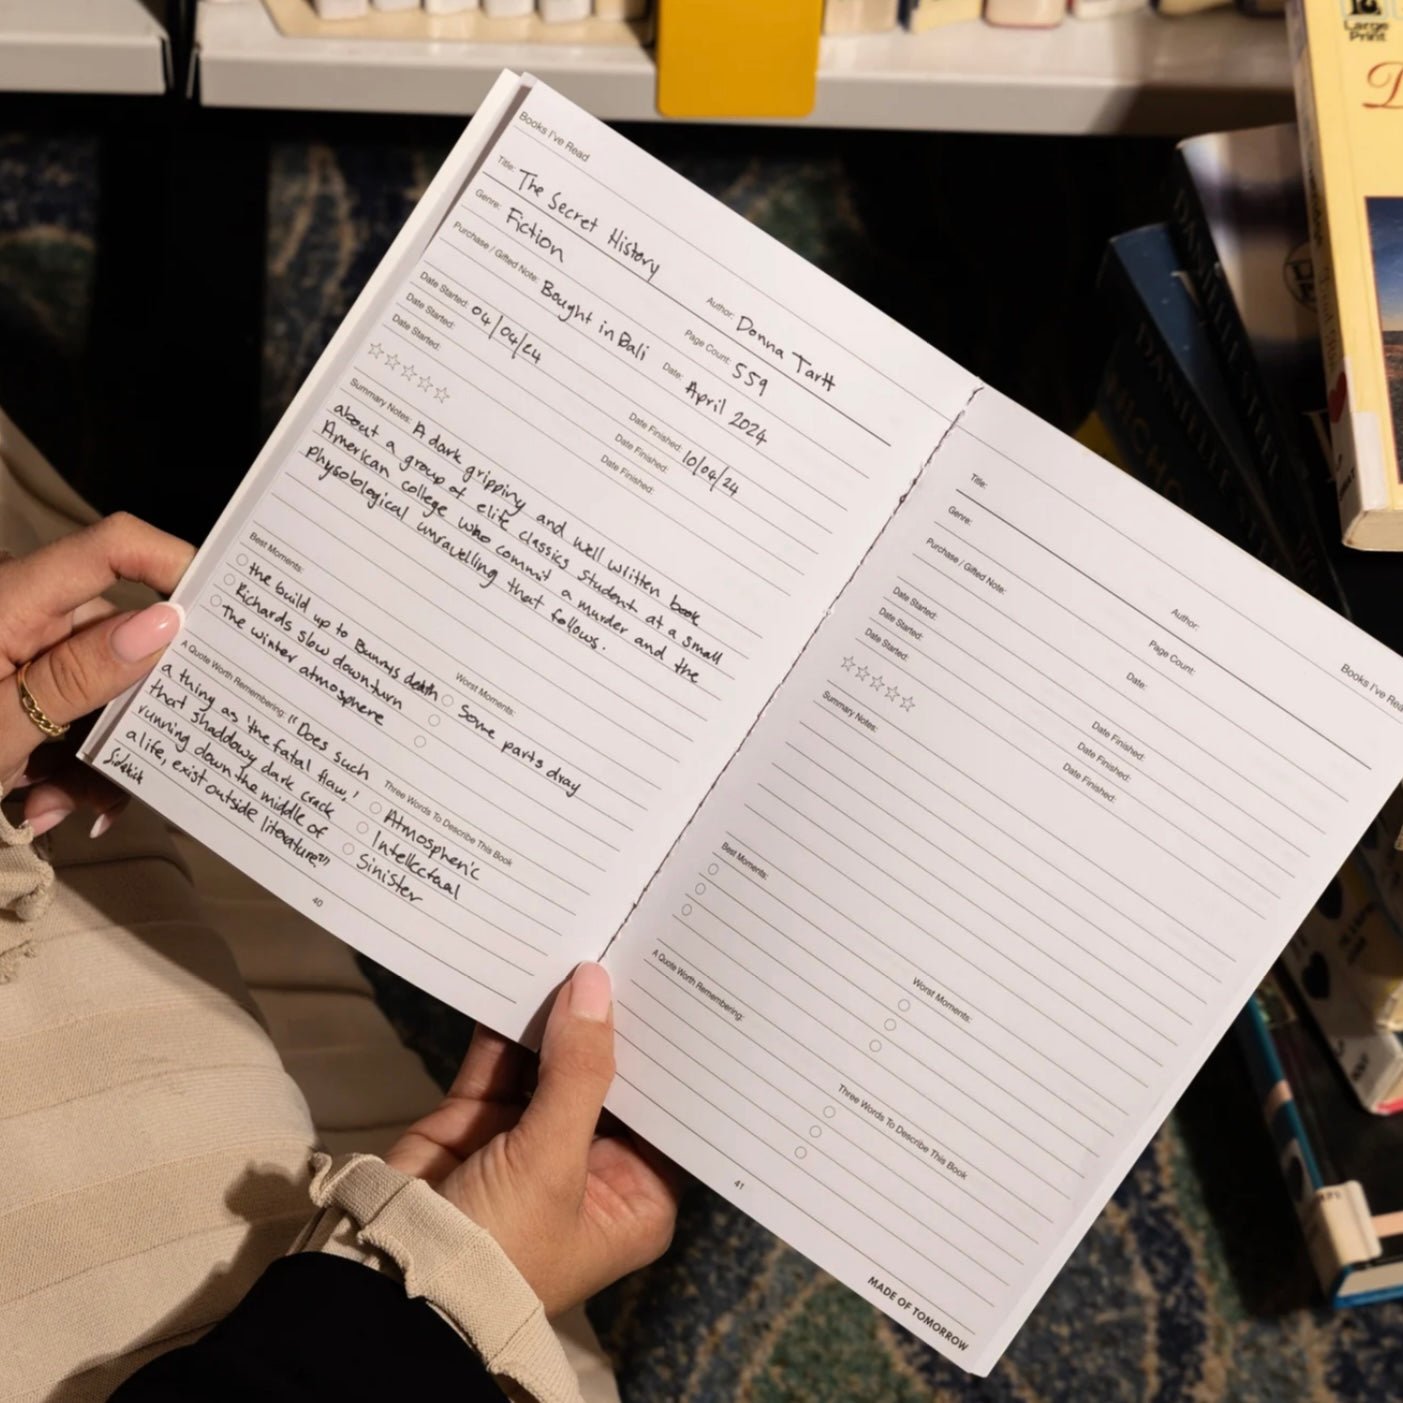 Books I've Read
Title: The Secret History
Author: Donna Tartt
Genre: Fiction
Page Count: 559
Purchase / Gifted Note: Bought in Bali
Date: April 2024
Date Started: 04/04/24
Date Finished: 10/04/24
Date Started:
Date Finished:
Date Started:
Date Finished:
Summary Notes: A dark gripping and well written book
about a group of elite classics student at a small
American college who commit a murder and the
physolobgical unravelling that follows.
Best Moments:
the build up to Bunnys death
Richards slow downturn
The winter atmosphere
Worst Moments:
Some parts dray
A Quote Worth Remembering: "Does such
a thing as 'the fatal flaw,'
that shaddowy dark crack
running down the middle of
a life, exist outside literature?"
Three Words To Describe This Book
Atmospheric
Intellectual
Sinister
Sidekick
40
Books I've Rea
Title:
Author:
Genre:
Page Count:
Purchase / Gifted Note:
Date:
Date Started:
Date Finished:
Date Started:
Date Finished:
Date Started:
Date Finished:
Summary Notes:
Best Moments:
Worst Moments:
A Quote Worth Remembering:
Three Words To Describe This Book
41
MADE OF TOMORROW
Large
Print